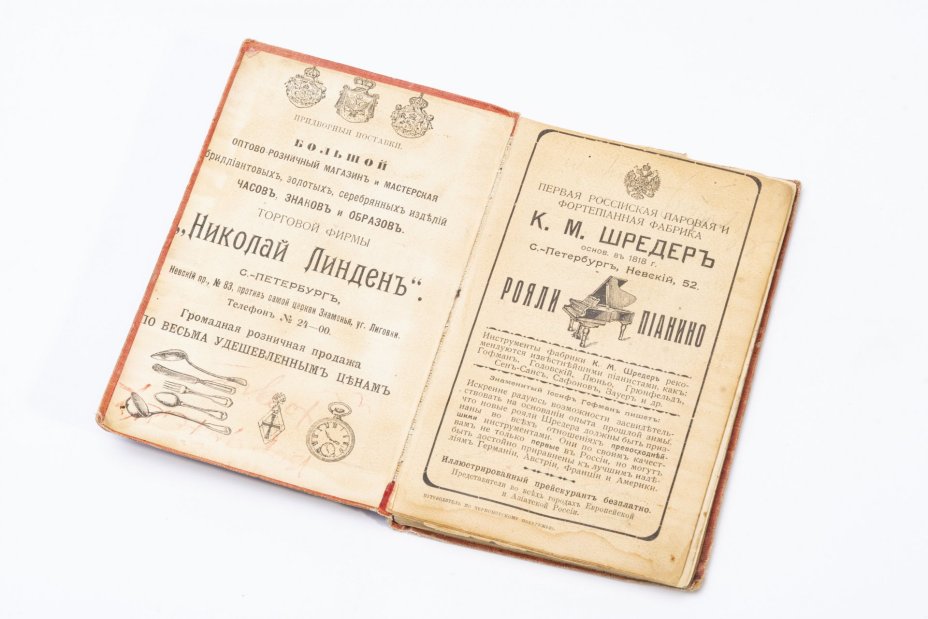 ПРИДВОРНЫЯ ПОСТАВКИ.
БОЛЬШОЙ
ОПТОВО-РОЗНИЧНЫЙ МАГАЗИНЪ и МАСТЕРСКАЯ
брилліантовыхъ, золотыхъ, серебрянныхъ издѣлій
ЧАСОВЪ, ЗНАКОВЪ и ОБРАЗОВЪ.
ТОРГОВОЙ ФИРМЫ
„Николай Линденъ“.
С.-ПЕТЕРБУРГЪ,
Невскій пр., № 83, противъ самой церкви Знаменья, уг. Лиговки.
Телефонъ № 24—00.
Громадная розничная продажа
ПО ВЕСЬМА УДЕШЕВЛЕННЫМЪ ЦѢНАМЪ
ПЕРВАЯ РОССІЙСКАЯ ПАРОВАЯ И
ФОРТЕПІАННАЯ ФАБРИКА
К. М. ШРЕДЕРЪ
основ. въ 1818 г.
С.-Петербургъ, Невскій, 52.
РОЯЛИ ПІАНИНО
Инструменты фабрики К. М. Шредеръ реко-
мендуются извѣстнѣйшими піанистами, какъ:
Гофманъ, Годовскій, Пюньо, Грюнфельдъ,
Сенъ-Сансъ, Сафоновъ, Зауеръ и др.
Знаменитый Іосифъ Гофманъ пишетъ:
Искренне радуюсь возможности засвидѣтель-
ствовать на основаніи опыта прошлой зимы,
что новые рояли Шредера должны быть приз-
наны во всѣхъ отношеніяхъ превосходнѣй-
шими инструментами. Они по своимъ качест-
вамъ не только первые въ Россіи, но могутъ
быть достойно приравнены къ лучшимъ издѣ-
ліямъ Германіи, Австріи, Франціи и Америки.
Иллюстрированный прейскурантъ безплатно.
Представители во всѣхъ городахъ Европейской
и Азіатской Россіи.
ПУТЕВОДИТЕЛЬ ПО ЧЕРНОМОРСКОМУ ПОБЕРЕЖЬЮ.